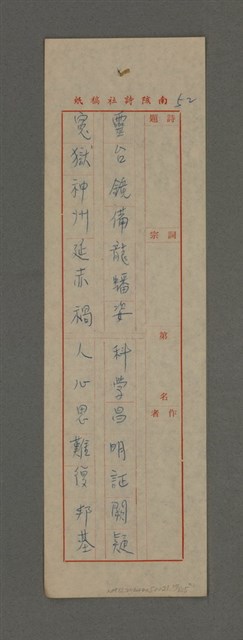 南陔詩社稿紙
52
詩題
詞宗
第 名
作者
靈台鏡備龍蟠姿 科學昌明証闕疑
冤獄神州延赤禍 人心思難復邦基